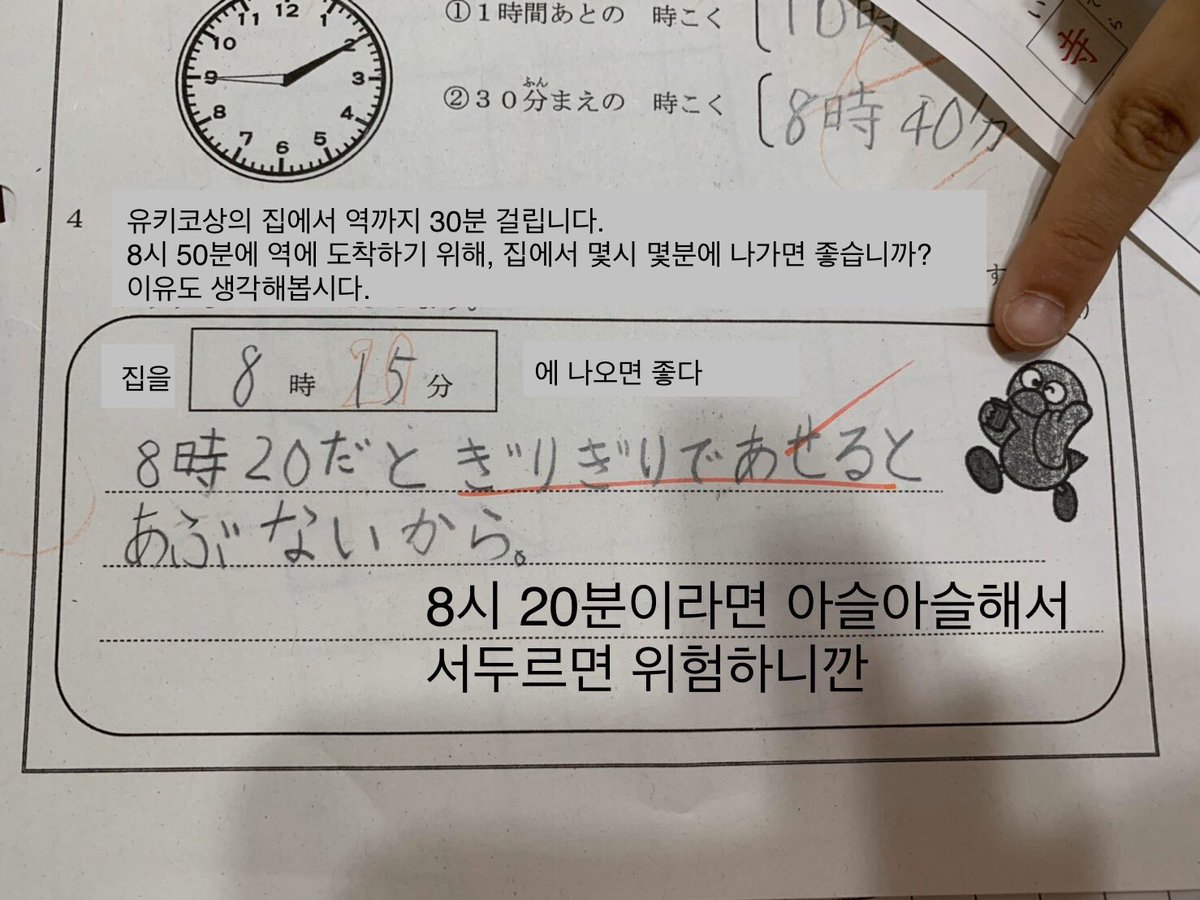 11 12 1
10 2
9 3
8 4
7 6 5
①1時間あとの 時こく
10時
②30分まえの 時こく
ふん
8時40分
寺
4
유키코상의 집에서 역까지 30분 걸립니다.
8시 50분에 역에 도착하기 위해, 집에서 몇시 몇분에 나가면 좋습니까?
이유도 생각해봅시다.
す
집을 8時15分 에 나오면 좋다
8時20だとぎりぎりであせると
あぶないから。
8시 20분이라면 아슬아슬해서
서두르면 위험하니깐